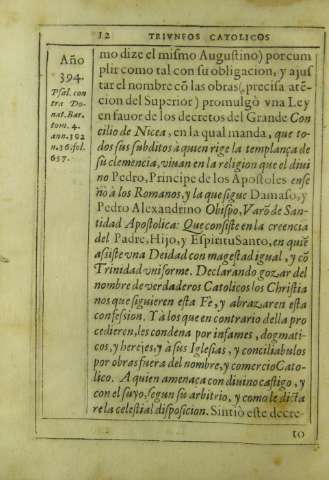 12 TRIVNFOS CATOLICOS
Año
394.
Psal. con
tra Do-
nat. Bar.
tom. 4.
ann. 392
n. 36. fol.
657.
mo dize el mismo Augustino) por cum
plir como tal con su obligacion, y ajus
tar el nombre cõ las obras (precisa atē-
cion del Superior) promulgò vna Ley
en fauor de los decretos del Grande Con
cilio de Nicea, en la qual manda, que to-
dos sus subditos à quien rige la templança de
su clemencia, viuan en la religion que el diui
no Pedro, Principe de los Apostoles ense
ñò à los Romanos, y la que sigue Damaso, y
Pedro Alexandrino Obispo, Varõ de San-
tidad Apostolica: Que consiste en la creencia
del Padre, Hijo, y Espiritu Santo, en quiẽ
asiste vna Deidad con magestad igual, y cõ
Trinidad vniforme. Declarando gozar del
nombre de verdaderos Catolicos los Christia
nos que siguieren esta Fè, y abrazaren esta
confession. Y à los que en contrario della pro
cedieren, les condena por infames, dogmati-
cos, y herejes, y à sus Iglesias, y conciliabulos
por obras fuera del nombre, y comercio Cato-
lico. A quien amenaça con diuino castigo, y
con el suyo, segun su arbitrio, y como le dicta
re la celestial disposicion. Sintiò este decre-
to